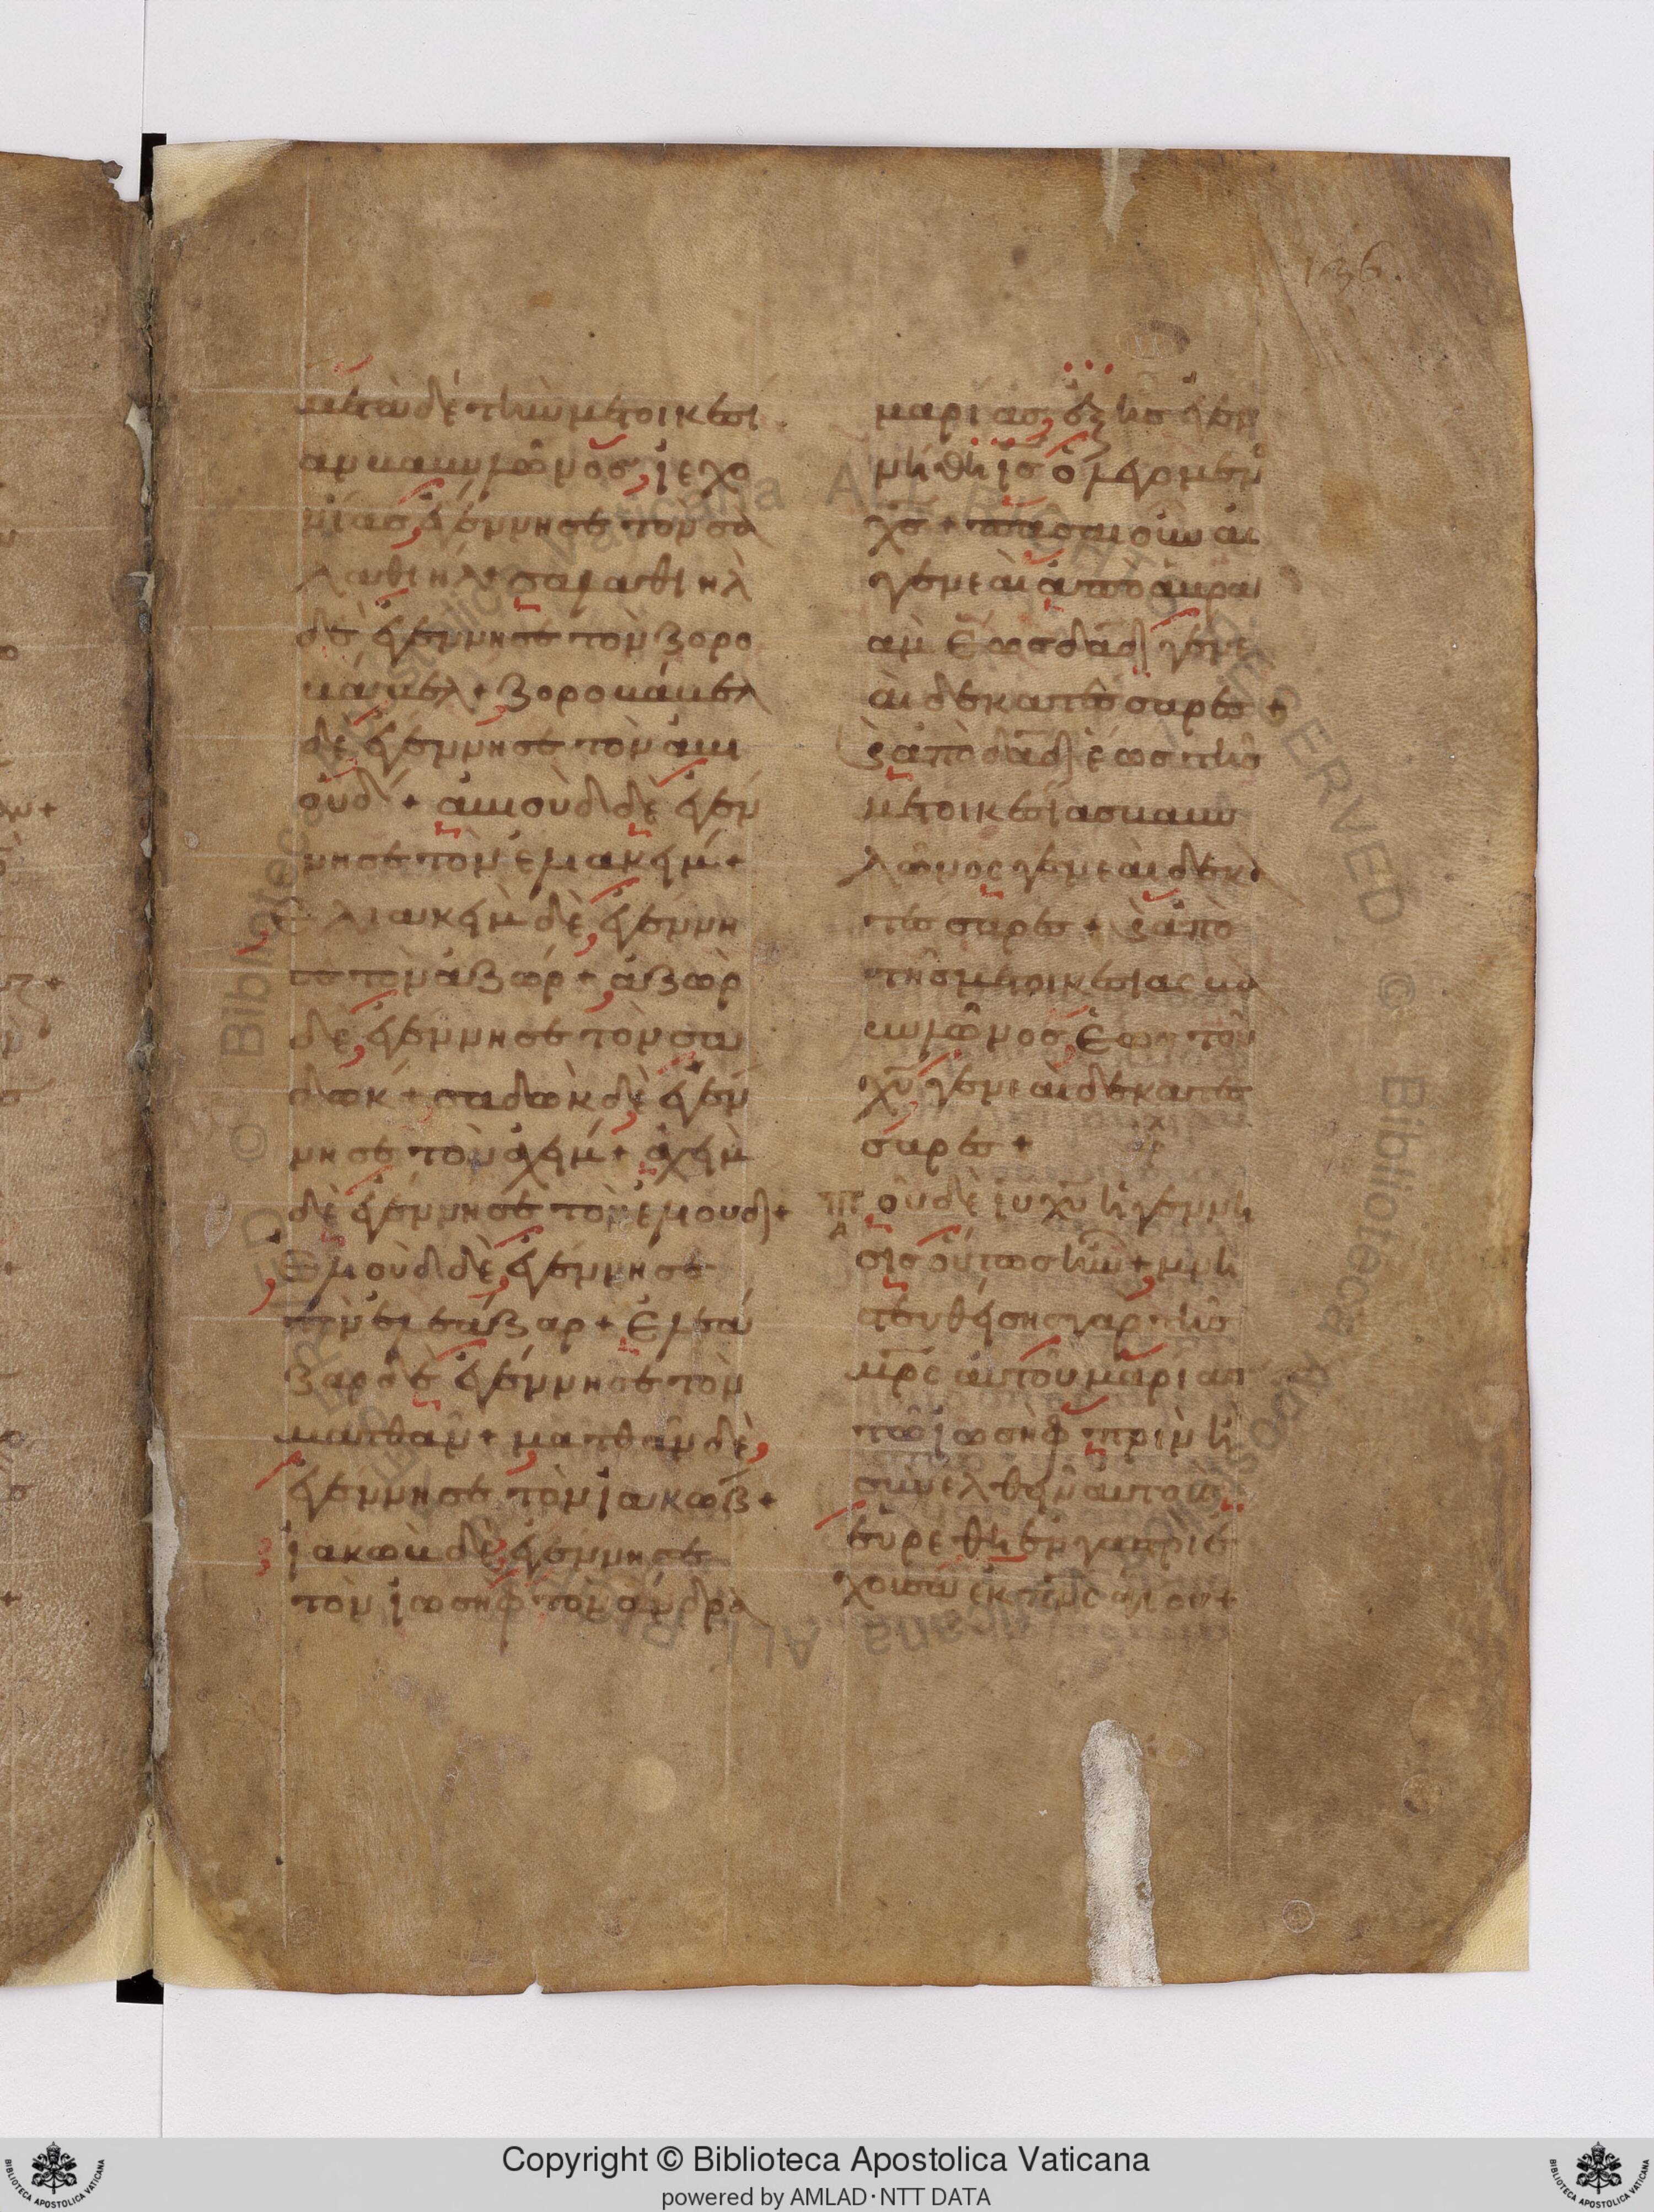 136.
μετὰ δὲ τὴν μετοικεσί
αν βαβυλῶνος, ἰεχο
νίας, ἐγέννησε τὸν σα
λαθιήλ + σαλαθιὴλ
δὲ ἐγέννησε τὸν ζορο
βάβελ + ζοροβάβελ
δὲ ἐγέννησε τὸν ἀβι
οὐδ + ἀβιοὺδ δὲ ἐγέν
νησε τὸν ἐλιακήμ +
Ἐλιακὴμ δὲ, ἐγέννη
σε τὸν ἀζώρ + ἀζὼρ
δὲ, ἐγέννησε τὸν σα
δώκ + σαδὼκ δὲ ἐγέν
νησε τὸν ἀχήμ + ἀχὴμ
δὲ ἐγέννησε τὸν ἐλιούδ +
Ἐλιοὺδ δὲ, ἐγέννησε
τὸν ἐλεάζαρ + Ἐλεά
ζαρ δὲ ἐγέννησε τὸν
ματθάν + ματθὰν δὲ,
ἐγέννησε τὸν ἰακώβ +
ἰακὼβ δὲ, ἐγέννησε
τὸν ἰωσὴφ τὸν ἄνδρα
μαρίας, ἐξ ἧς ἐγεν
νήθη ις ὁ λεγόμενο
χς + πᾶσαι οὖν αἱ
γενεαὶ ἀπὸ ἀβρα
ὰμ ἕως δαδ γενε
αὶ δεκατέσσαρες +
ϗ ἀπὸ δαδ ἕως τῆς
μετοικεσίας βαβυ
λῶνος γενεαὶ δεκα
τέσσαρες + ϗ ἀπὸ
τῆς μετοικεσίας βα
βυλῶνος, ἕως τοῦ
χυ γενεαὶ δεκατέσ
σαρες +
Τοῦ δὲ ιυ χυ ἡ γέννη
σις οὕτως ἦν + μνη
στευθείσης γὰρ τῆς
μρς αὐτοῦ μαρίας
τῷ ἰωσήφ, πρὶν ἢ
συνελθεῖν αὐτοὺς
εὑρέθη ἐν γαστρὶ ἔ
χουσα ἐκ πνς ἁγίου +
Copyright © Biblioteca Apostolica Vaticana
powered by AMLAD·NTT DATA